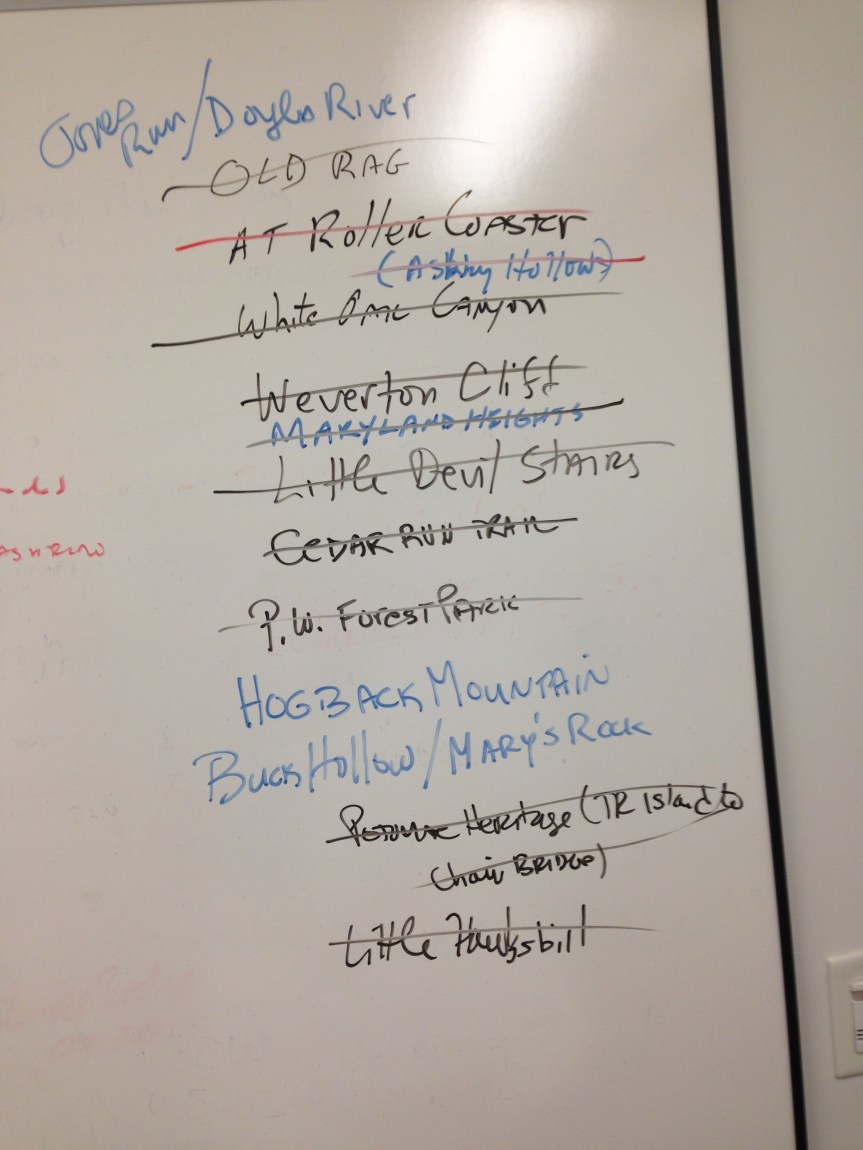 Jones
Run/Doyles River
OLD RAG
AT Roller Coaster
(Ashby Hollow)
White Oak Canyon
Weverton Cliff
MARYLAND HEIGHTS
Little Devil Stairs
CEDAR RUN TRAIL
P.W. Forest Park
HOGBACK MOUNTAIN
Buck Hollow/MARY'S Rock
Heritage (TR Island to
Chain BRIDGE)
Little Hawksbill